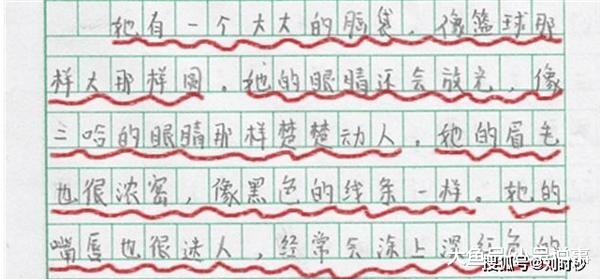 她有一个大大的脑袋，像篮球那
样大那样圆。她的眼睛还会放光，像
三哈的眼睛那样楚楚动人。她的眉毛
也很浓密，像黑色的线条一样。她的
嘴唇也很迷人，经常会涂上深红色的
搜狐号@刘时秒